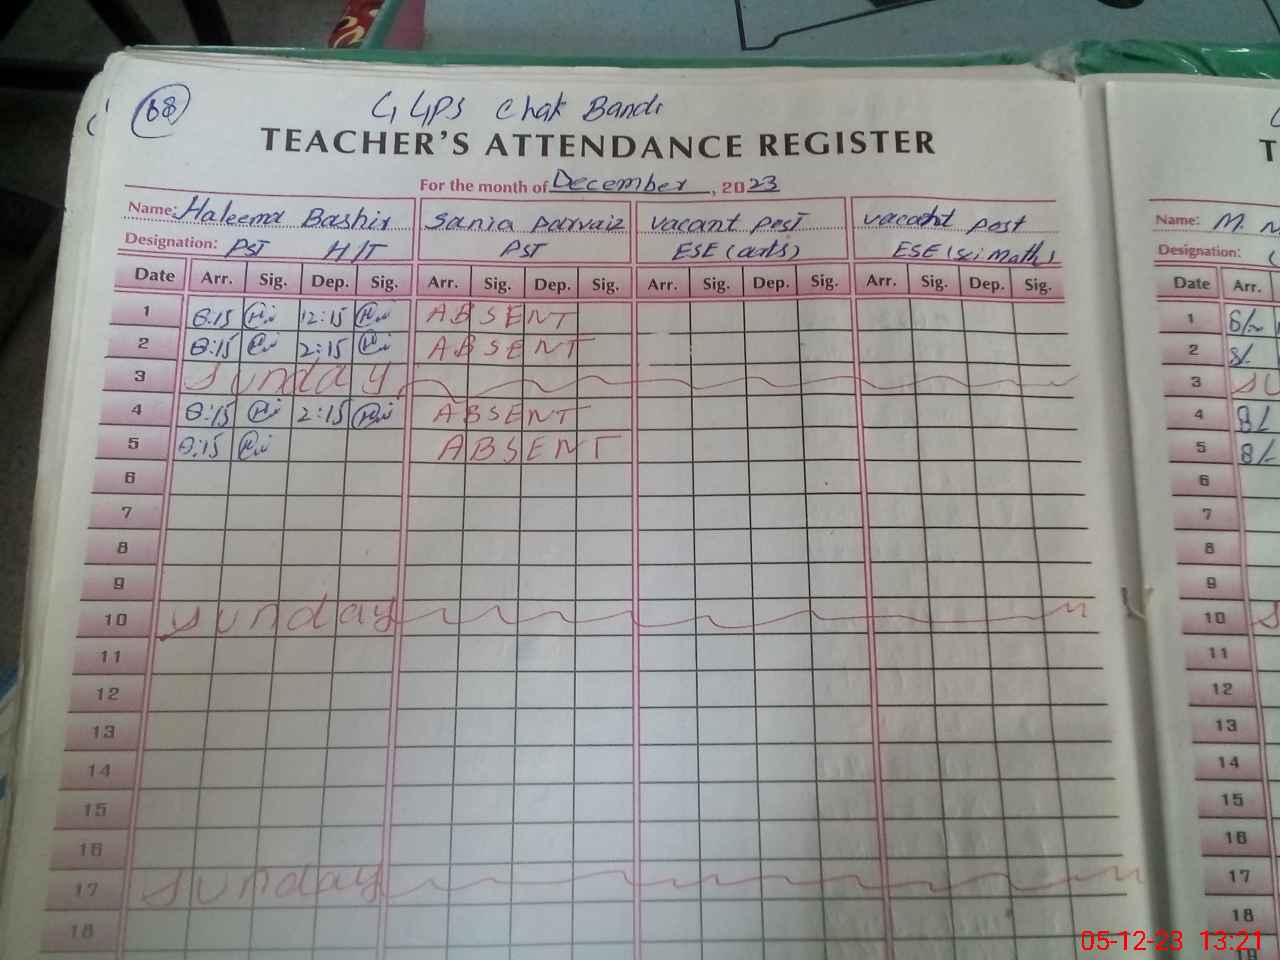 68
GGPS Chak Bandi
TEACHER'S ATTENDANCE REGISTER
For the month of December, 2023
Name: Haleema Bashir sania parvaiz vacant post vacant post
Designation: PST H/T PST ESE (arts) ESE (sci math)
Date Arr. Sig. Dep. Sig. Arr. Sig. Dep. Sig. Arr. Sig. Dep. Sig. Arr. Sig. Dep. Sig.
1 8:15 12:15 ABSENT
2 8:15 2:15 ABSENT
3 Sunday
4 8:15 2:15 ABSENT
5 8:15 ABSENT
6
7
8
9
10 Sunday
11
12
13
14
15
16
17 Sunday
18
T
Name: M.
Designation:
Date Arr.
1
2 8/-
3 Su
4 8/-
5 8/-
6
7
8
9
10 S
11
12
13
14
15
16
17
18
19
05-12-23 13:21